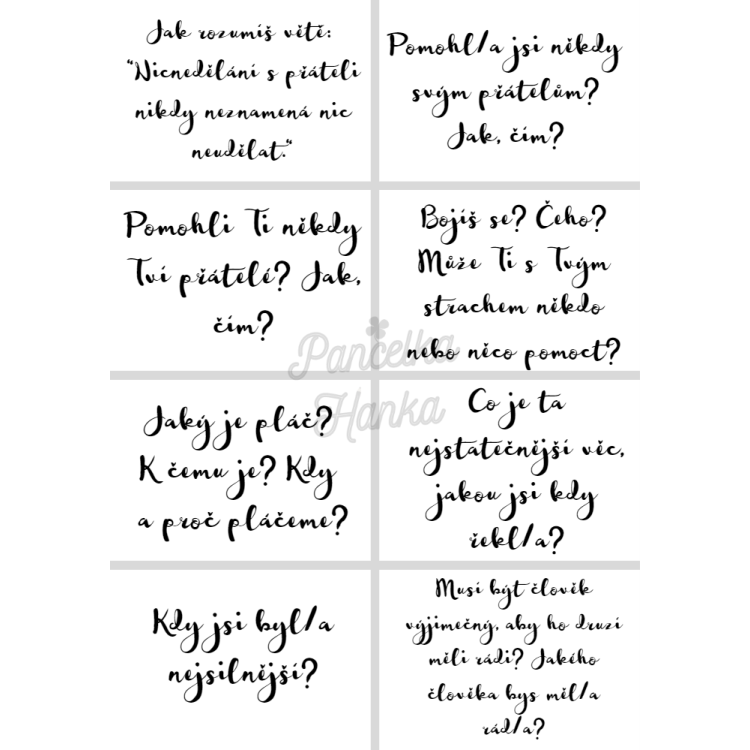 Jak rozumíš větě:
"Nicnedělání s přáteli
nikdy neznamená nic
neudělat."
Pomohl/a jsi někdy
svým přátelům?
Jak, čím?
Pomohli Ti někdy
Tví přátelé? Jak,
čím?
Bojíš se? Čeho?
Může Ti s Tvým
strachem někdo
nebo něco pomoct?
Pančelka
Hanka
Jaký je pláč?
K čemu je? Kdy
a proč pláčeme?
Co je ta
nejstatečnější věc,
jakou jsi kdy
řekl/a?
Kdy jsi byl/a
nejsilnější?
Musí být člověk
výjimečný, aby ho druzí
měli rádi? Jakého
člověka bys měl/a
rád/a?